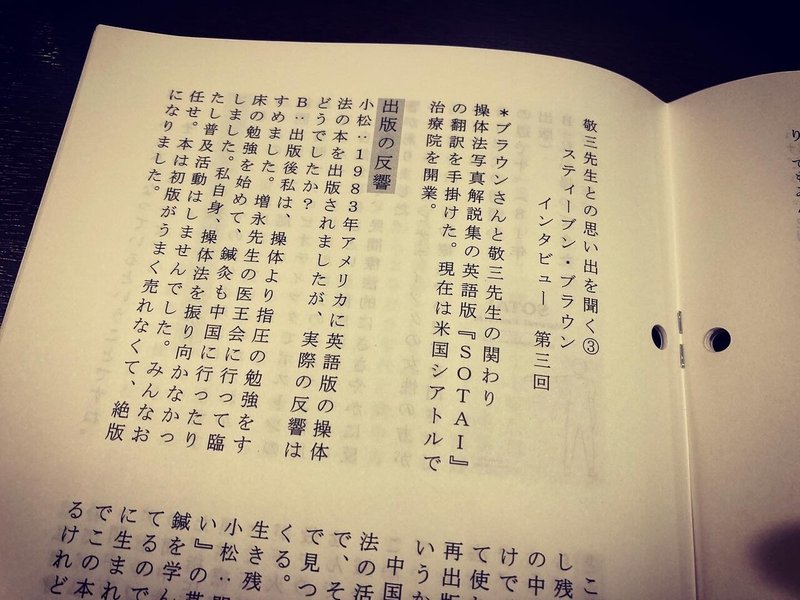 敬三先生との思い出を聞く③
スティーブン・ブラウン
インタビュー 第三回
＊ブラウンさんと敬三先生の関わり
操体法写真解説集の英語版『SOTAI』
の翻訳を手掛けた。現在は米国シアトルで
治療院を開業。
出版の反響
小松‥1983年アメリカに英語版の操体
法の本を出版されましたが、実際の反響は
どうでしたか？
B‥出版後私は、操体より指圧の勉強をす
すめました。増永先生の医王会に行って臨
床の勉強を始めて、鍼灸も中国に行ったり
しました。私自身、操体法を振り向かなかっ
たし普及活動はしませんでした。みんなお
任せ。本は初版がうまく売れなくて、絶版
になりました。
こ
し残
の中
けで
て使
再出版
いうか
中国
法の活
で、そ
で見つ
くる。
生き残
小松‥
い』の
鍼を学ん
てるので
に生まれ
でこの本
るけれど